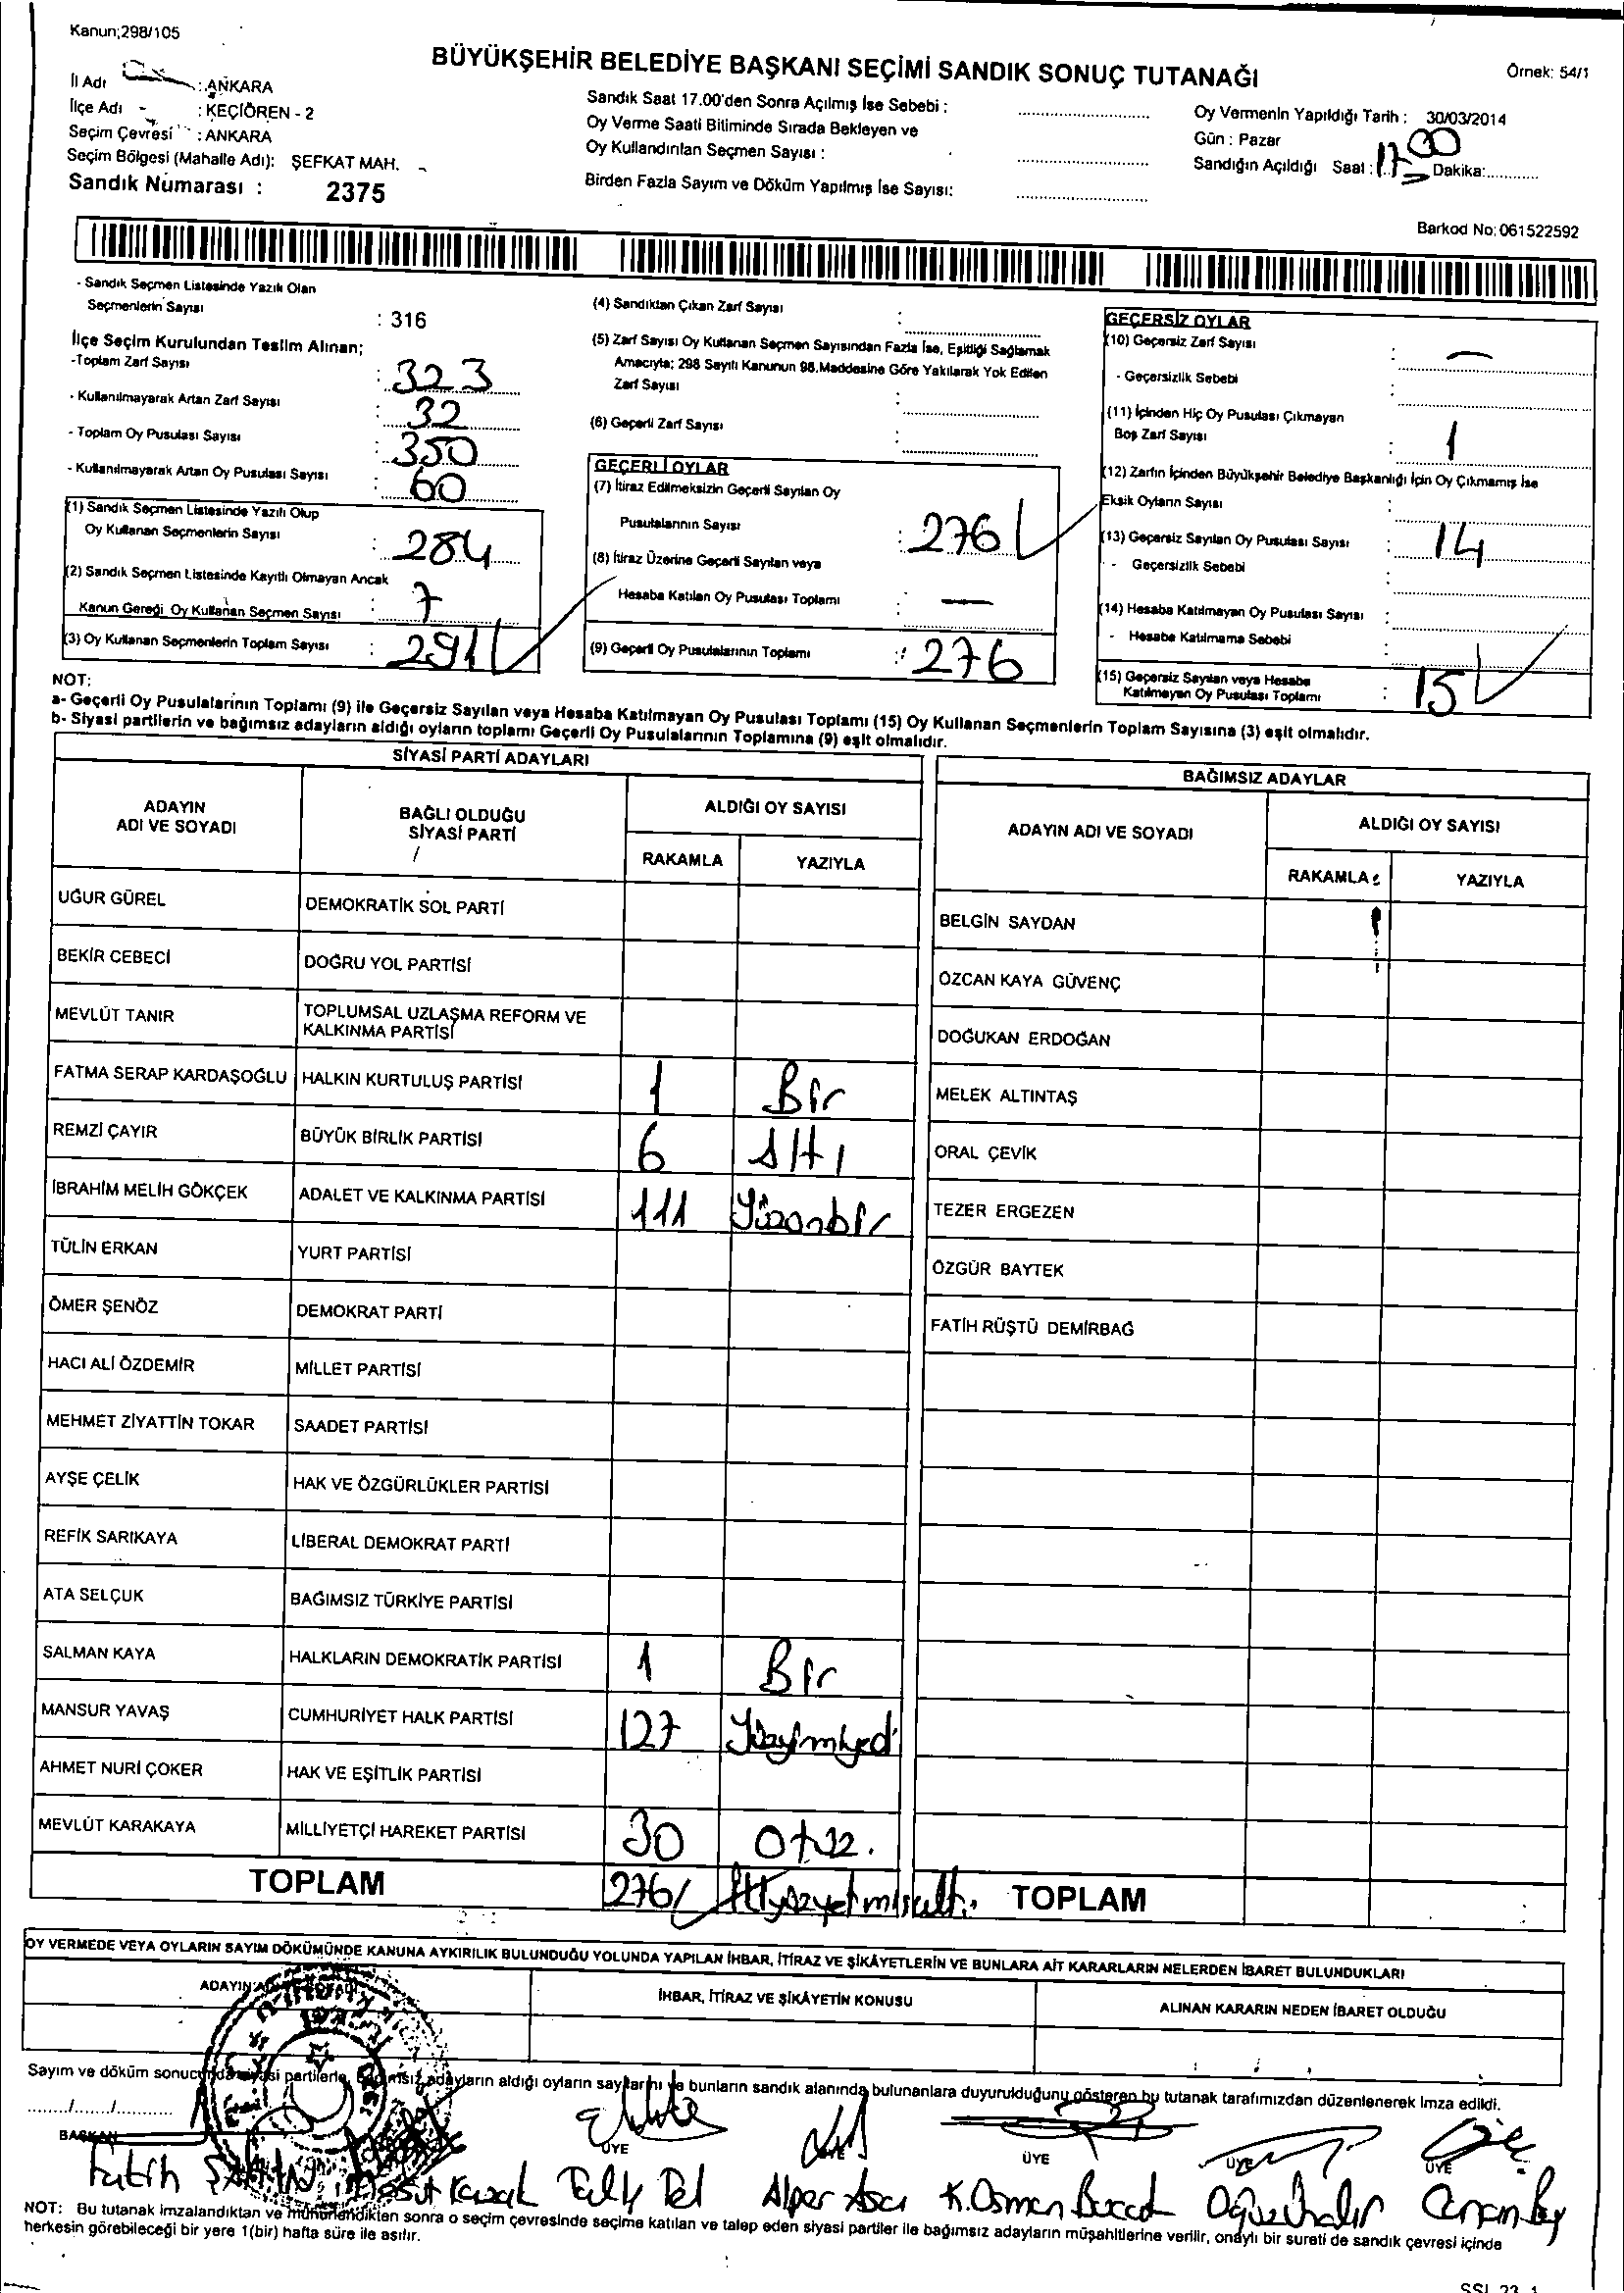 Kanun;298/105
BÜYÜKŞEHİR BELEDİYE BAŞKANI SEÇİMİ SANDIK SONUÇ TUTANAĞI
Örnek: 54/1
İl Adı : ANKARA
İlçe Adı : KEÇİÖREN - 2
Seçim Çevresi : ANKARA
Seçim Bölgesi (Mahalle Adı): ŞEFKAT MAH.
Sandık Numarası : 2375
Sandık Saat 17.00'den Sonra Açılmış İse Sebebi :
Oy Verme Saati Bitiminde Sırada Bekleyen ve
Oy Kullandırılan Seçmen Sayısı :
Birden Fazla Sayım ve Döküm Yapılmış İse Sayısı:
Oy Vermenin Yapıldığı Tarih : 30/03/2014
Gün : Pazar
Sandığın Açıldığı Saat : 17 00 Dakika:............
Barkod No: 061522592
- Sandık Seçmen Listesinde Yazılı Olan
Seçmenlerin Sayısı : 316
İlçe Seçim Kurulundan Teslim Alınan;
-Toplam Zarf Sayısı : 323
- Kullanılmayarak Artan Zarf Sayısı : 32
- Toplam Oy Pusulası Sayısı : 350
- Kullanılmayarak Artan Oy Pusulası Sayısı : 60
(1) Sandık Seçmen Listesinde Yazılı Olup
Oy Kullanan Seçmenlerin Sayısı : 284
(2) Sandık Seçmen Listesinde Kayıtlı Olmayan Ancak
Kanun Gereği Oy Kullanan Seçmen Sayısı : 7
(3) Oy Kullanan Seçmenlerin Toplam Sayısı : 291
(4) Sandıktan Çıkan Zarf Sayısı :
(5) Zarf Sayısı Oy Kullanan Seçmen Sayısından Fazla İse, Eşitliği Sağlamak
Amacıyla; 298 Sayılı Kanunun 98.Maddesine Göre Yakılarak Yok Edilen
Zarf Sayısı :
(6) Geçerli Zarf Sayısı :
GEÇERLİ OYLAR
(7) İtiraz Edilmeksizin Geçerli Sayılan Oy
Pusulalarının Sayısı : 276
(8) İtiraz Üzerine Geçerli Sayılan veya
Hesaba Katılan Oy Pusulası Toplamı : —
(9) Geçerli Oy Pusulalarının Toplamı : 276
GEÇERSİZ OYLAR
(10) Geçersiz Zarf Sayısı : —
- Geçersizlik Sebebi
(11) İçinden Hiç Oy Pusulası Çıkmayan
Boş Zarf Sayısı : 1
(12) Zarfın İçinden Büyükşehir Belediye Başkanlığı İçin Oy Çıkmamış İse
Eksik Oyların Sayısı :
(13) Geçersiz Sayılan Oy Pusulası Sayısı : 14
- Geçersizlik Sebebi :
(14) Hesaba Katılmayan Oy Pusulası Sayısı :
- Hesaba Katılmama Sebebi :
(15) Geçersiz Sayılan veya Hesaba
Katılmayan Oy Pusulası Toplamı : 15
NOT:
a- Geçerli Oy Pusulalarının Toplamı (9) ile Geçersiz Sayılan veya Hesaba Katılmayan Oy Pusulası Toplamı (15) Oy Kullanan Seçmenlerin Toplam Sayısına (3) eşit olmalıdır.
b- Siyasi partilerin ve bağımsız adayların aldığı oyların toplamı Geçerli Oy Pusulalarının Toplamına (9) eşit olmalıdır.
SİYASİ PARTİ ADAYLARI
ADAYIN ADI VE SOYADI BAĞLI OLDUĞU SİYASİ PARTİ ALDIĞI OY SAYISI
RAKAMLA YAZIYLA
UĞUR GÜREL DEMOKRATİK SOL PARTİ
BEKİR CEBECİ DOĞRU YOL PARTİSİ
MEVLÜT TANIR TOPLUMSAL UZLAŞMA REFORM VE KALKINMA PARTİSİ
FATMA SERAP KARDAŞOĞLU HALKIN KURTULUŞ PARTİSİ 1 Bir
REMZİ ÇAYIR BÜYÜK BİRLİK PARTİSİ 6 Altı
İBRAHİM MELİH GÖKÇEK ADALET VE KALKINMA PARTİSİ 111 Yüzonbir
TÜLİN ERKAN YURT PARTİSİ
ÖMER ŞENÖZ DEMOKRAT PARTİ
HACI ALİ ÖZDEMİR MİLLET PARTİSİ
MEHMET ZİYATTİN TOKAR SAADET PARTİSİ
AYŞE ÇELİK HAK VE ÖZGÜRLÜKLER PARTİSİ
REFİK SARIKAYA LİBERAL DEMOKRAT PARTİ
ATA SELÇUK BAĞIMSIZ TÜRKİYE PARTİSİ
SALMAN KAYA HALKLARIN DEMOKRATİK PARTİSİ 1 Bir
MANSUR YAVAŞ CUMHURİYET HALK PARTİSİ 127 Yüzyirmiyedi
AHMET NURİ ÇOKER HAK VE EŞİTLİK PARTİSİ
MEVLÜT KARAKAYA MİLLİYETÇİ HAREKET PARTİSİ 30 Otuz.
TOPLAM 276 İkiyüzyetmişaltı
BAĞIMSIZ ADAYLAR
ADAYIN ADI VE SOYADI ALDIĞI OY SAYISI
RAKAMLA YAZIYLA
BELGİN SAYDAN
ÖZCAN KAYA GÜVENÇ
DOĞUKAN ERDOĞAN
MELEK ALTINTAŞ
ORAL ÇEVİK
TEZER ERGEZEN
ÖZGÜR BAYTEK
FATİH RÜŞTÜ DEMİRBAĞ
TOPLAM
OY VERMEDE VEYA OYLARIN SAYIM DÖKÜMÜNDE KANUNA AYKIRILIK BULUNDUĞU YOLUNDA YAPILAN İHBAR, İTİRAZ VE ŞİKÂYETLERİN VE BUNLARA AİT KARARLARIN NELERDEN İBARET BULUNDUKLARI
ADAYIN İHBAR, İTİRAZ VE ŞİKÂYETİN KONUSU ALINAN KARARIN NEDEN İBARET OLDUĞU
Sayım ve döküm sonucunda siyasi partilerle, bağımsız adayların aldığı oyların sayılarını ve bunların sandık alanında bulunanlara duyurulduğunu gösteren bu tutanak tarafımızdan düzenlenerek imza edildi.
......./......./............
BAŞKAN ÜYE ÜYE ÜYE ÜYE ÜYE
Fatih ŞAHİN Mesut Alper K.Osman Canan
NOT: Bu tutanak imzalandıktan ve mühürlendikten sonra o seçim çevresinde seçime katılan ve talep eden siyasi partiler ile bağımsız adayların müşahitlerine verilir, onaylı bir sureti de sandık çevresi içinde
herkesin görebileceği bir yere 1(bir) hafta süre ile asılır.